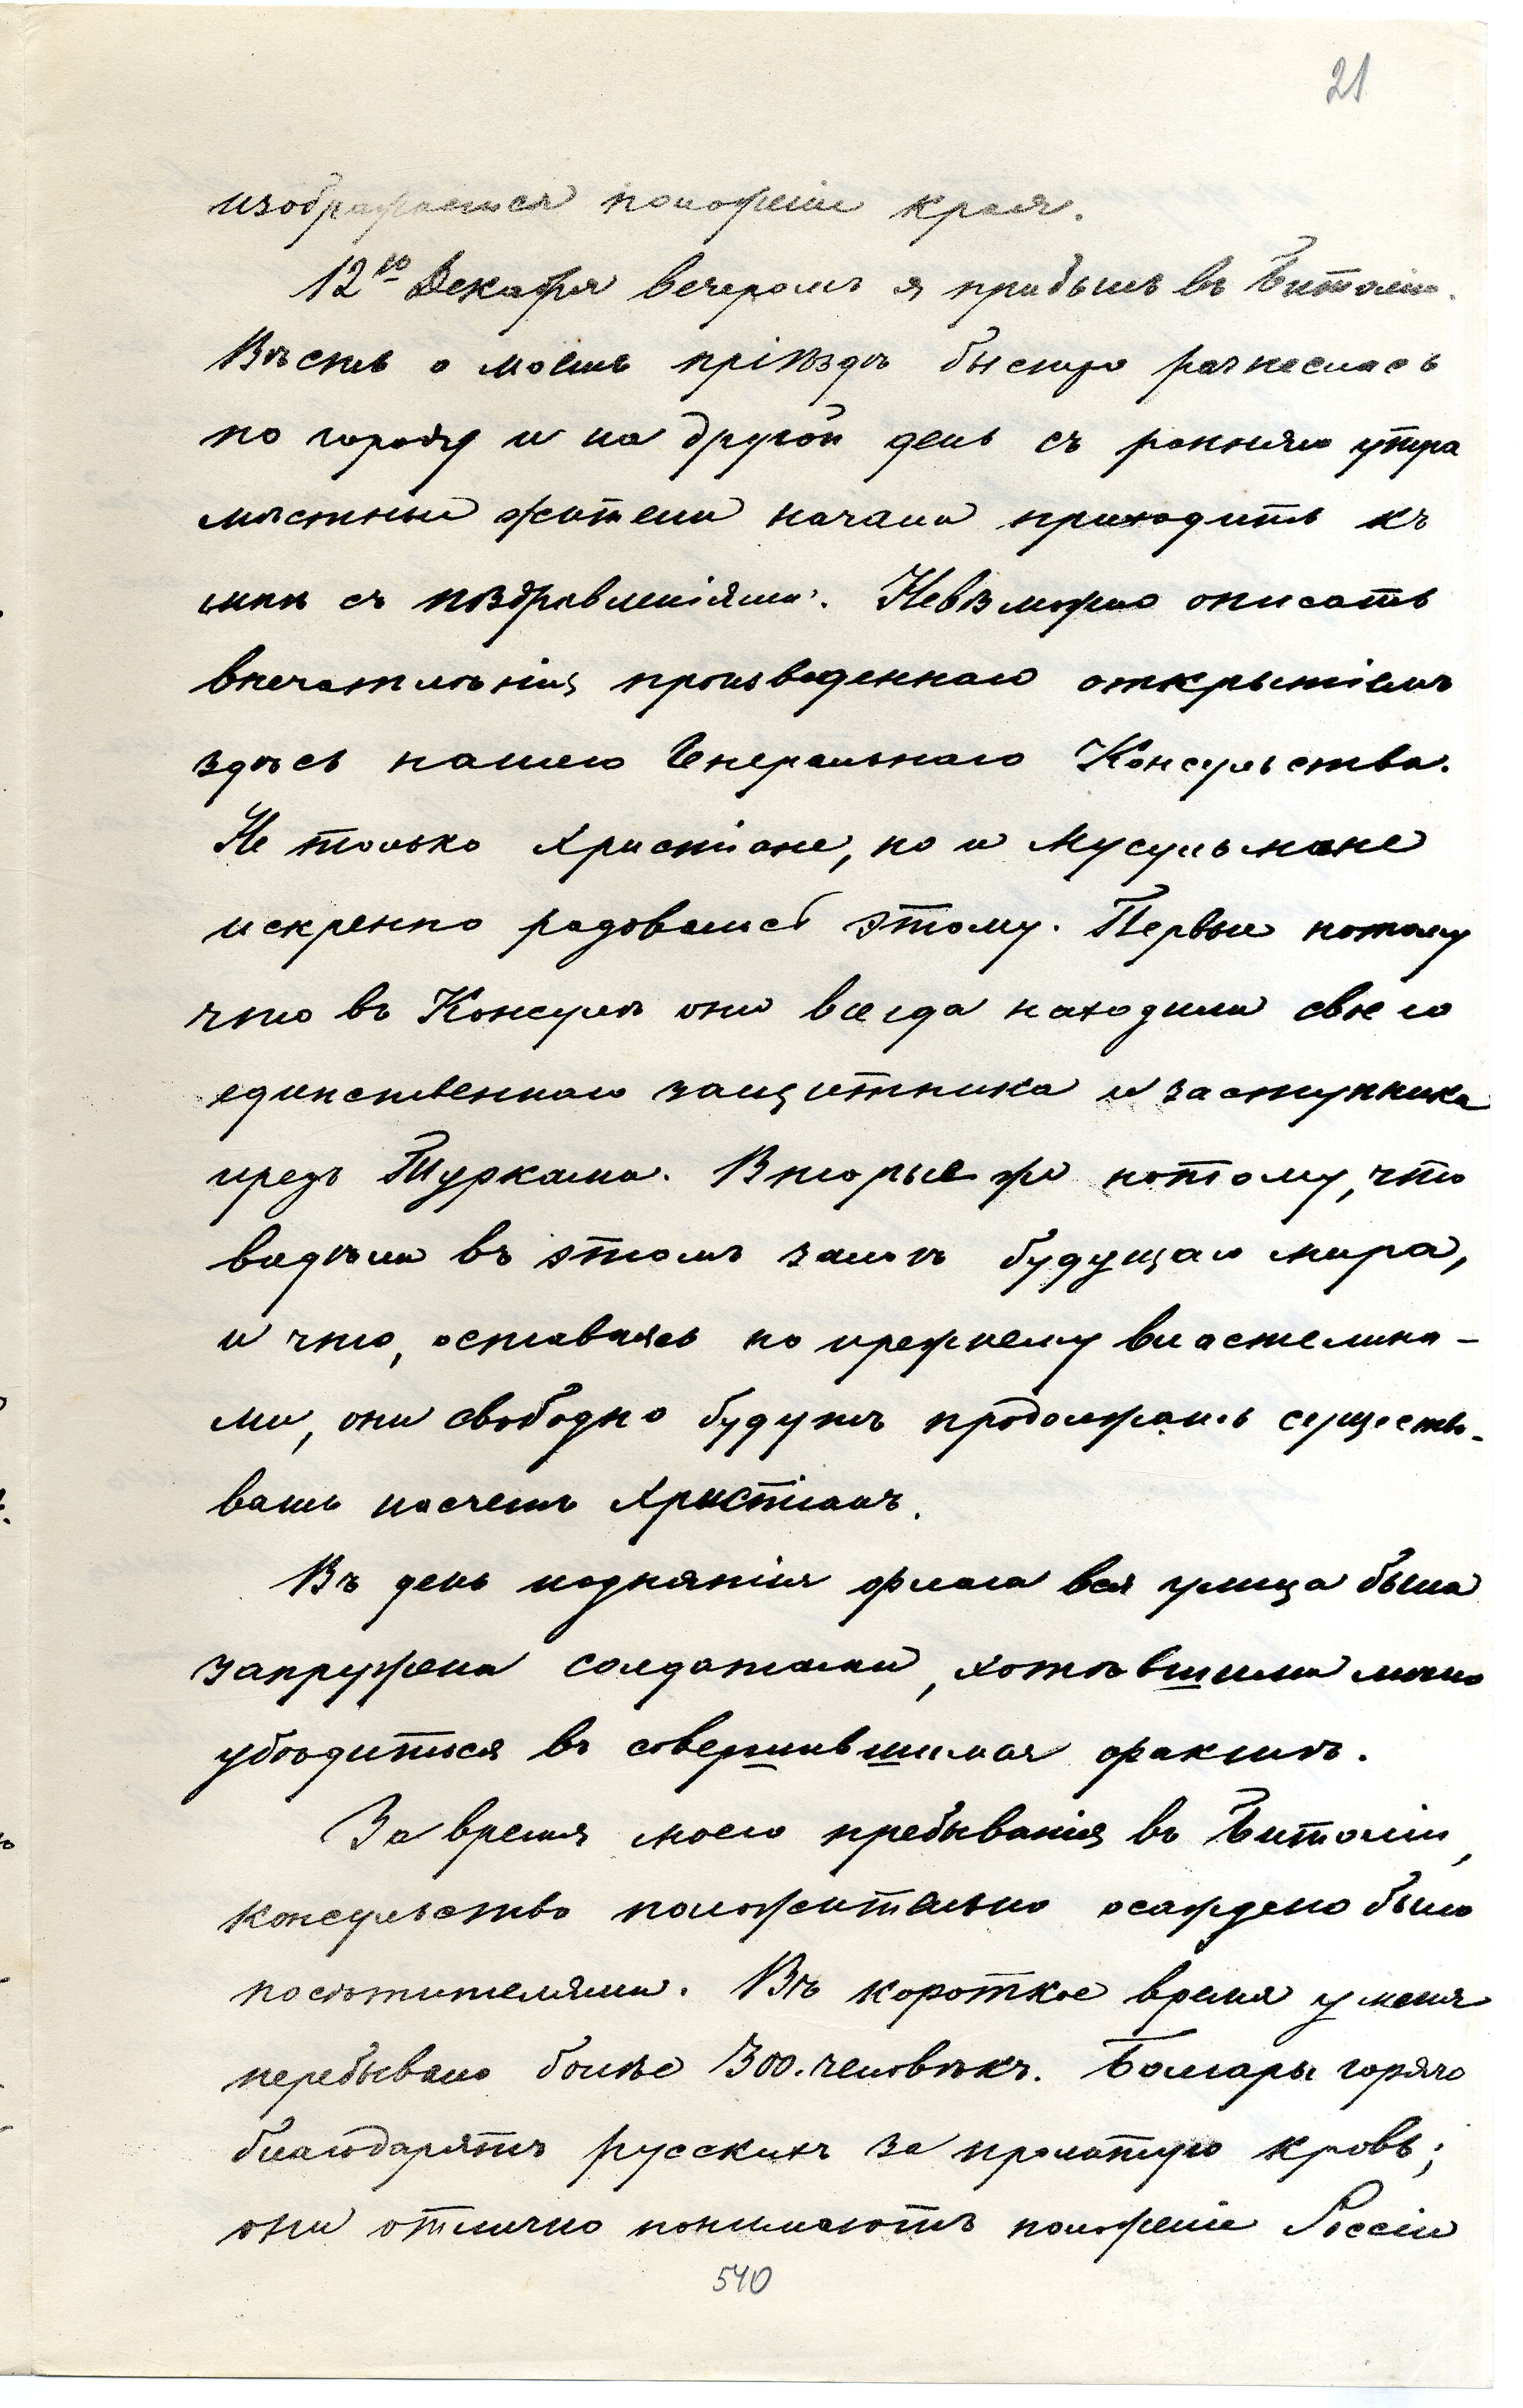 21
изображается положеніе края.
12го Декабря вечеромъ я прибылъ въ Битолію.
Вѣсть о моемъ пріѣздѣ быстро разнеслась
по городу и на другой день съ ранняго утра
мѣстные жители начали приходить къ
мнѣ съ поздравленіями. Невозможно описать
впечатлѣнія произведеннаго открытіемъ
здѣсь нашего Генеральнаго Консульства.
Не только Христіане, но и Мусульмане
искренно радовались этому. Первые потому
что въ Консулѣ они всегда находили своего
единственнаго защитника и заступника
предъ Турками. Вторые же потому, что
видѣли въ этомъ залогъ будущаго мира,
и что, оставаясь по прежнему властелина-
ми, они свободно будутъ продолжать существо-
вать насчетъ Христіанъ.
Въ день поднятія флага вся улица была
запружена солдатами, хотѣвшими лично
убѣдиться въ совершившимся фактѣ.
За время моего пребыванія въ Битоліи,
консульство положительно осаждено было
посѣтителями. Въ короткое время у меня
перебывало болѣе 300. человѣкъ. Болгары горячо
благодарятъ русскихъ за пролитую кровь;
они отлично понимаютъ положеніе Россіи
540